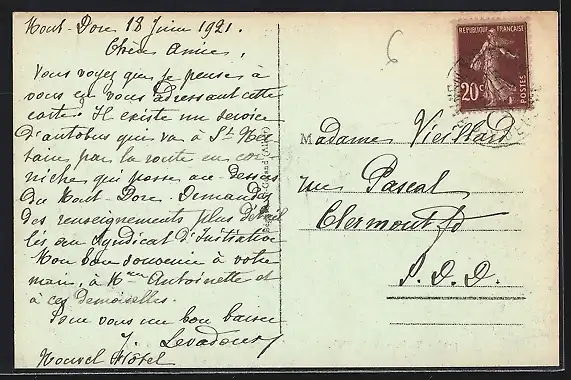 Mont-Dore 18 Juin 1921.
Chère Amie,
Vous voyez que je pense à
vous en vous adressant cette
carte. Il existe un service
d'autobus qui va à St Nec-
taire par la route en cor-
niche qui passe au-dessus
du Mont-Dore. Demandez
des renseignements plus détail
lés au Syndicat d'Initiative
Mon bon souvenir à votre
mari, à Mme Antoinette et
à ces demoiselles.
Pour vous un bon baiser
J. Levadoux
Nouvel Hôtel
6
REPUBLIQUE FRANÇAISE
20c
POSTES
Madame Vieillard
rue Pascal
Clermont-Fd
P.D.D.